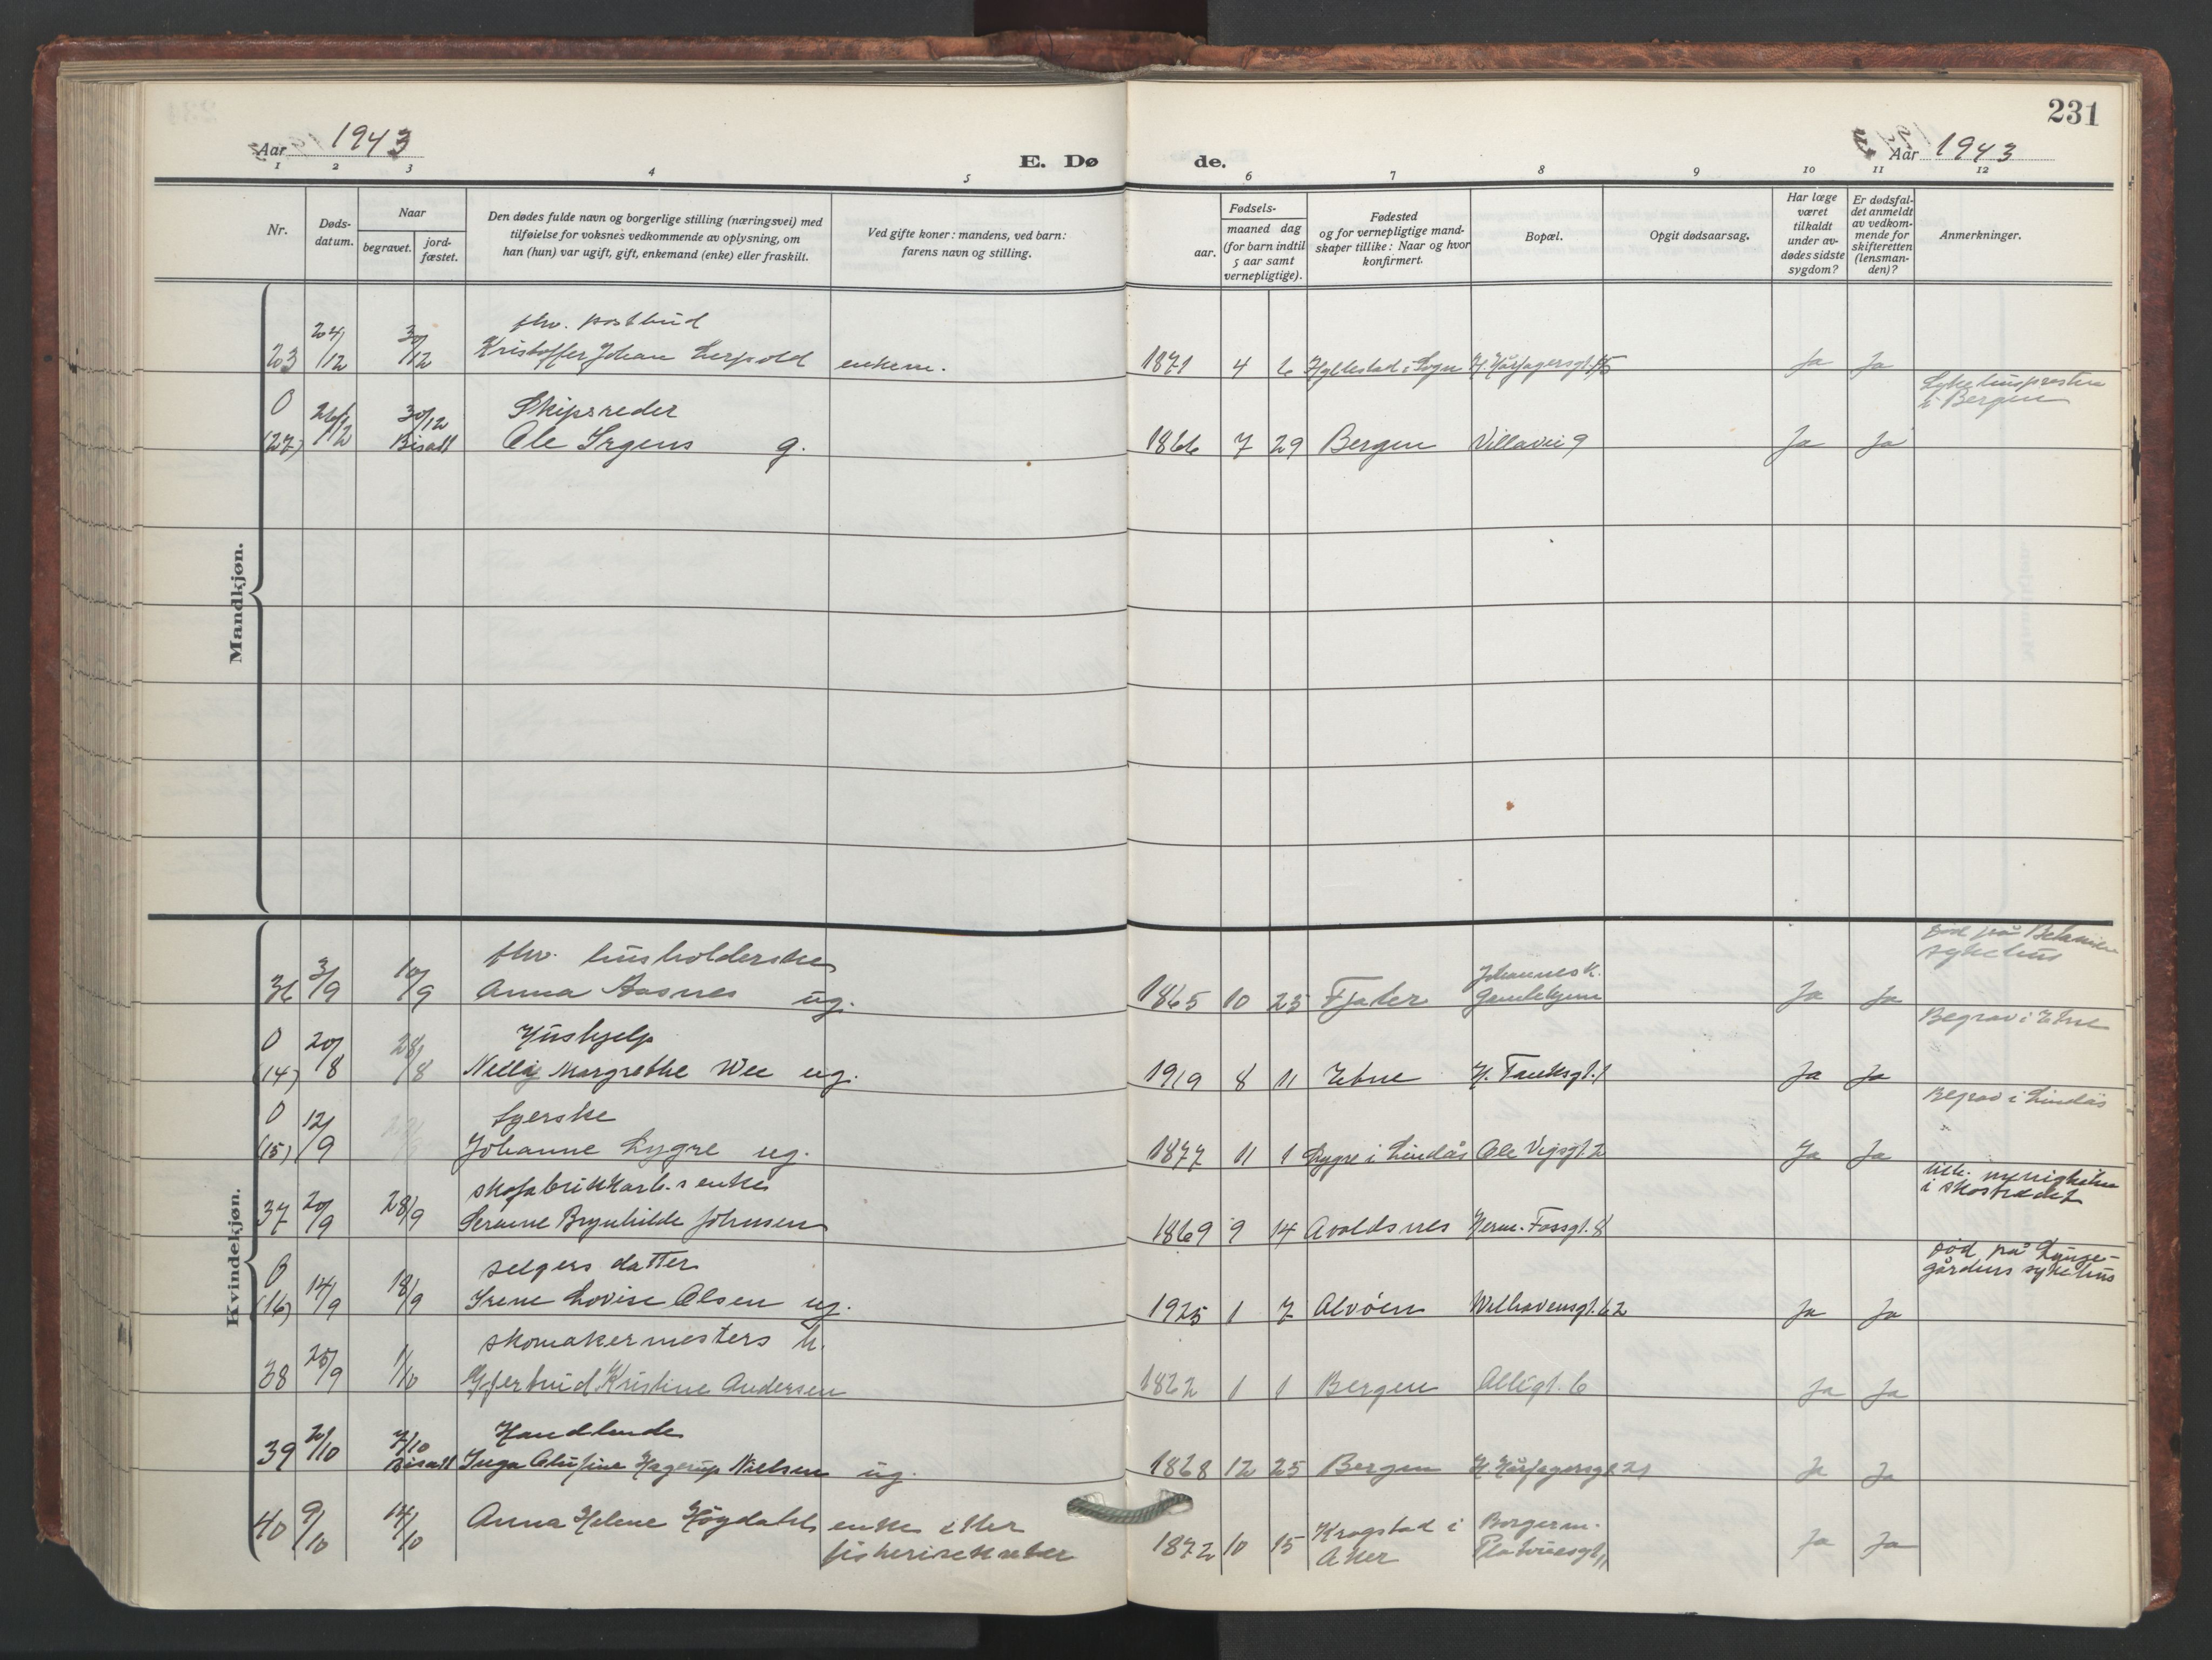 231
Aar 1943
E. Døde.
Aar 1943
1 2 3 4 5 6 7 8 9 10 11 12
Nr.
Døds-
datum.
Naar
begravet.
jord-
fæstet.
Den dødes fulde navn og borgerlige stilling (næringsvei) med
tilføielse for voksnes vedkommende av oplysning, om
han (hun) var ugift, gift, enkemand (enke) eller fraskilt.
Ved gifte koner: mandens, ved barn:
farens navn og stilling.
Fødsels-
aar.
maaned dag
(for barn indtil
5 aar samt
vernepligtige).
Fødested
og for vernepligtige mand-
skaper tillike: Naar og hvor
konfirmert.
Bopæl.
Opgit dødsaarsag.
Har læge
været
tilkaldt
under av-
dødes sidste
sygdom?
Er dødsfal-
det anmeldt
av vedkom-
mende for
skifteretten
(lensman-
den)?
Anmerkninger.
Mandkjøn.
fhv. postbud
23 24/12 30/12 Kristoffer Johan Leirpold enkem. 1871 4 6 Hyllestad i Sogn H. Hårfagersgt. 15 Ja Ja
Sykehuspresten
i Bergen
0 26/12 30/12 Skipsreder
(27) Bisatt Ole Irgens g. 1866 7 29 Bergen Villavei 9 Ja Ja
Kvindekjøn.
død på Betanien
sykehus
fhv. husholderske
36 3/9 10/9 Anna Aasnes ug. 1865 10 25 Fjaler Johannes k. Gamlehjem Ja Ja
Begrav i Etne
0 20/8 28/8 Hushjelp
(14) Nelly Margrethe Wee ug. 1919 8 11 Etne H. Tanksgt. 1 Ja Ja
Begrav i Lindås
0 12/9 Syerske
(15) Johanne Lygre ug. 1877 11 1 Lygre i Lindås Ole Vigsgt. 2 Ja Ja
tilh. menigheten
i skostredet
skofabrikkarb.s enke
37 20/9 28/9 Serine Brynhilde Johnsen 1869 9 14 Avaldsnes Herm. Fossgt. 8
død på Lunge-
gårdens sykehus
0 14/9 18/9 selgers datter
(16) Irene Lovise Olsen ug. 1925 1 7 Alvøen Welhavensgt. 62 Ja Ja
skomakermesters h.
38 25/9 1/10 Gjertrud Kristine Andersen 1862 1 1 Bergen Allégt. 6 Ja Ja
Handlende
39 2/10 7/10 Bisatt Inga Hagerup Nielsen ug. 1868 12 25 Bergen H. Hårfagersgt 21 Ja Ja
40 9/10 14/10 Anna Helene Høydahl enke etter 1872 10 15 Krogstad i Borgerm. Ja Ja
fiskerisekretær Aker Platousgt. 11